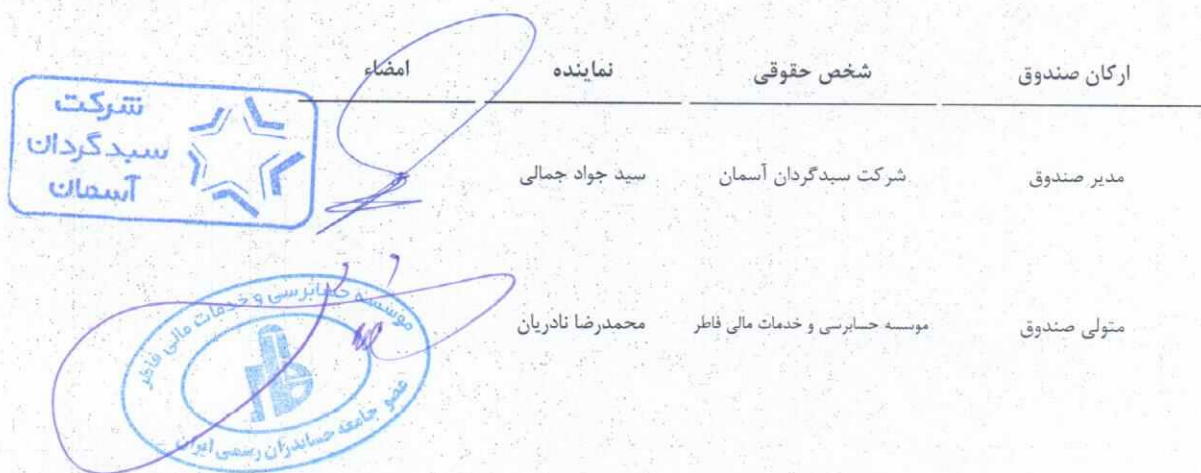 ارکان صندوق شخص حقوقی نماینده امضاء
مدیر صندوق شرکت سبدگردان آسمان سید جواد جمالی
شرکت
سبدگردان
آسمان
متولی صندوق موسسه حسابرسی و خدمات مالی فاطر محمدرضا نادریان
موسسه حسابرسی و خدمات مالی فاطر
عضو جامعه حسابداران رسمی ایران